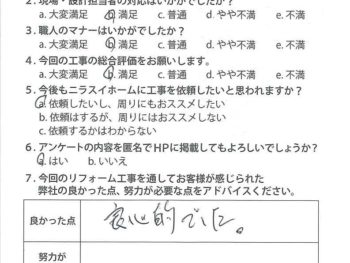 2. 現場・設計担当者の対応はいかがでしたか？
a. 大変満足 b. 満足 c. 普通 d. やや不満 e. 不満
3. 職人のマナーはいかがでしたか？
a. 大変満足 b. 満足 c. 普通 d. やや不満 e. 不満
4. 今回の工事の総合評価をお願いします。
a. 大変満足 b. 満足 c. 普通 d. やや不満 e. 不満
5. 今後もニラスイホームに工事を依頼したいと思われますか？
a. 依頼したいし、周りにもおススメしたい
b. 依頼はするが、周りにはおススメしない
c. 依頼するかはわからない
6. アンケートの内容を匿名でHPに掲載してもよろしいでしょうか？
a. はい b. いいえ
7. 今回のリフォーム工事を通してお客様が感じられた
弊社の良かった点、努力が必要な点をアドバイスください。
良かった点 良心的でした。
努力が